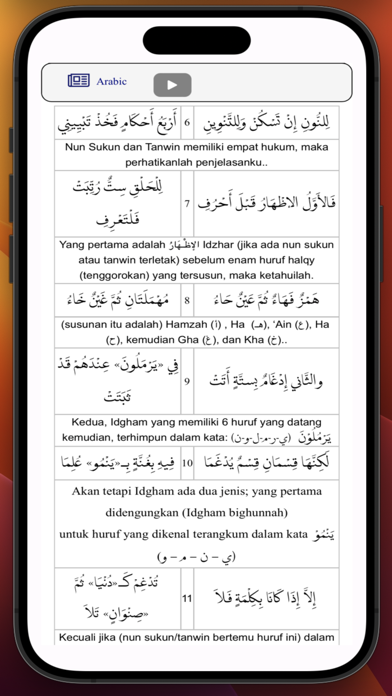 Arabic
لِلنُّونِ إِنْ تَسْكُنْ وَلِلتَّنْوِينِ 6 أَرْبَعُ أَحْكَامٍ فَخُذْ تَبْيِينِي
Nun Sukun dan Tanwin memiliki empat hukum, maka
perhatikanlah penjelasanku..
فَالأَوَّلُ الاظْهَارُ قَبْلَ أَحْرُفِ 7 لِلْحَلْقِ سِتٌّ رُتِّبَتْ
فَلْتَعْرِفِ
Yang pertama adalah الإِظْهَارُ Idzhar (jika ada nun sukun
atau tanwin terletak) sebelum enam huruf halqy
(tenggorokan) yang tersusun, maka ketahuilah.
هَمْزٌ فَهَاءٌ ثُمَّ عَيْنٌ حَاءُ 8 مُهْمَلَتَانِ ثُمَّ غَيْنٌ خَاءُ
(susunan itu adalah) Hamzah (أ) , Ha (هـ), ‘Ain (ع), Ha
(ح), kemudian Gha (غ), dan Kha (خ)..
والثَّانِي إِدْغَامٌ بِستَّةٍ أَتَتْ 9 فِي «يَرْمَلُونَ» عِنْدَهُمْ قَدْ
ثَبَتَتْ
Kedua, Idgham yang memiliki 6 huruf yang datang
kemudian, terhimpun dalam kata: يَرْمُلُوْنَ (ي-ر-م-ل-و-ن)
لَكِنَّهَا قِسْمَانِ قِسْمٌ يُدْغَمَا 10 فِيهِ بِغُنَّةٍ بِـ«يَنْمُو» عُلِمَا
Akan tetapi Idgham ada dua jenis; yang pertama
didengungkan (Idgham bighunnah)
untuk huruf yang dikenal terangkum dalam kata يَنْمُوْ
(ي – ن – م – و)
إِلاَّ إِذَا كَانَا بِكِلْمَةٍ فَلاَ 11 تُدْغِمْ كَـ«دُنْيَا» ثُمَّ
«صِنْوَانٍ» تَلاَ
Kecuali jika (nun sukun/tanwin bertemu huruf ini) dalam